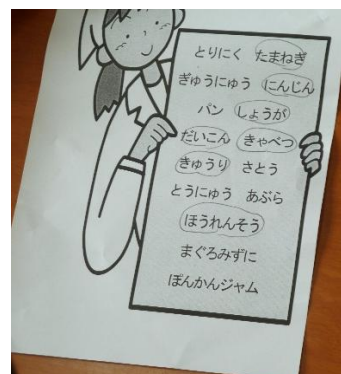 とりにく たまねぎ
ぎゅうにゅう にんじん
パン しょうが
だいこん きゃべつ
きゅうり さとう
とうにゅう あぶら
ほうれんそう
まぐろみずに
ぽんかんジャム